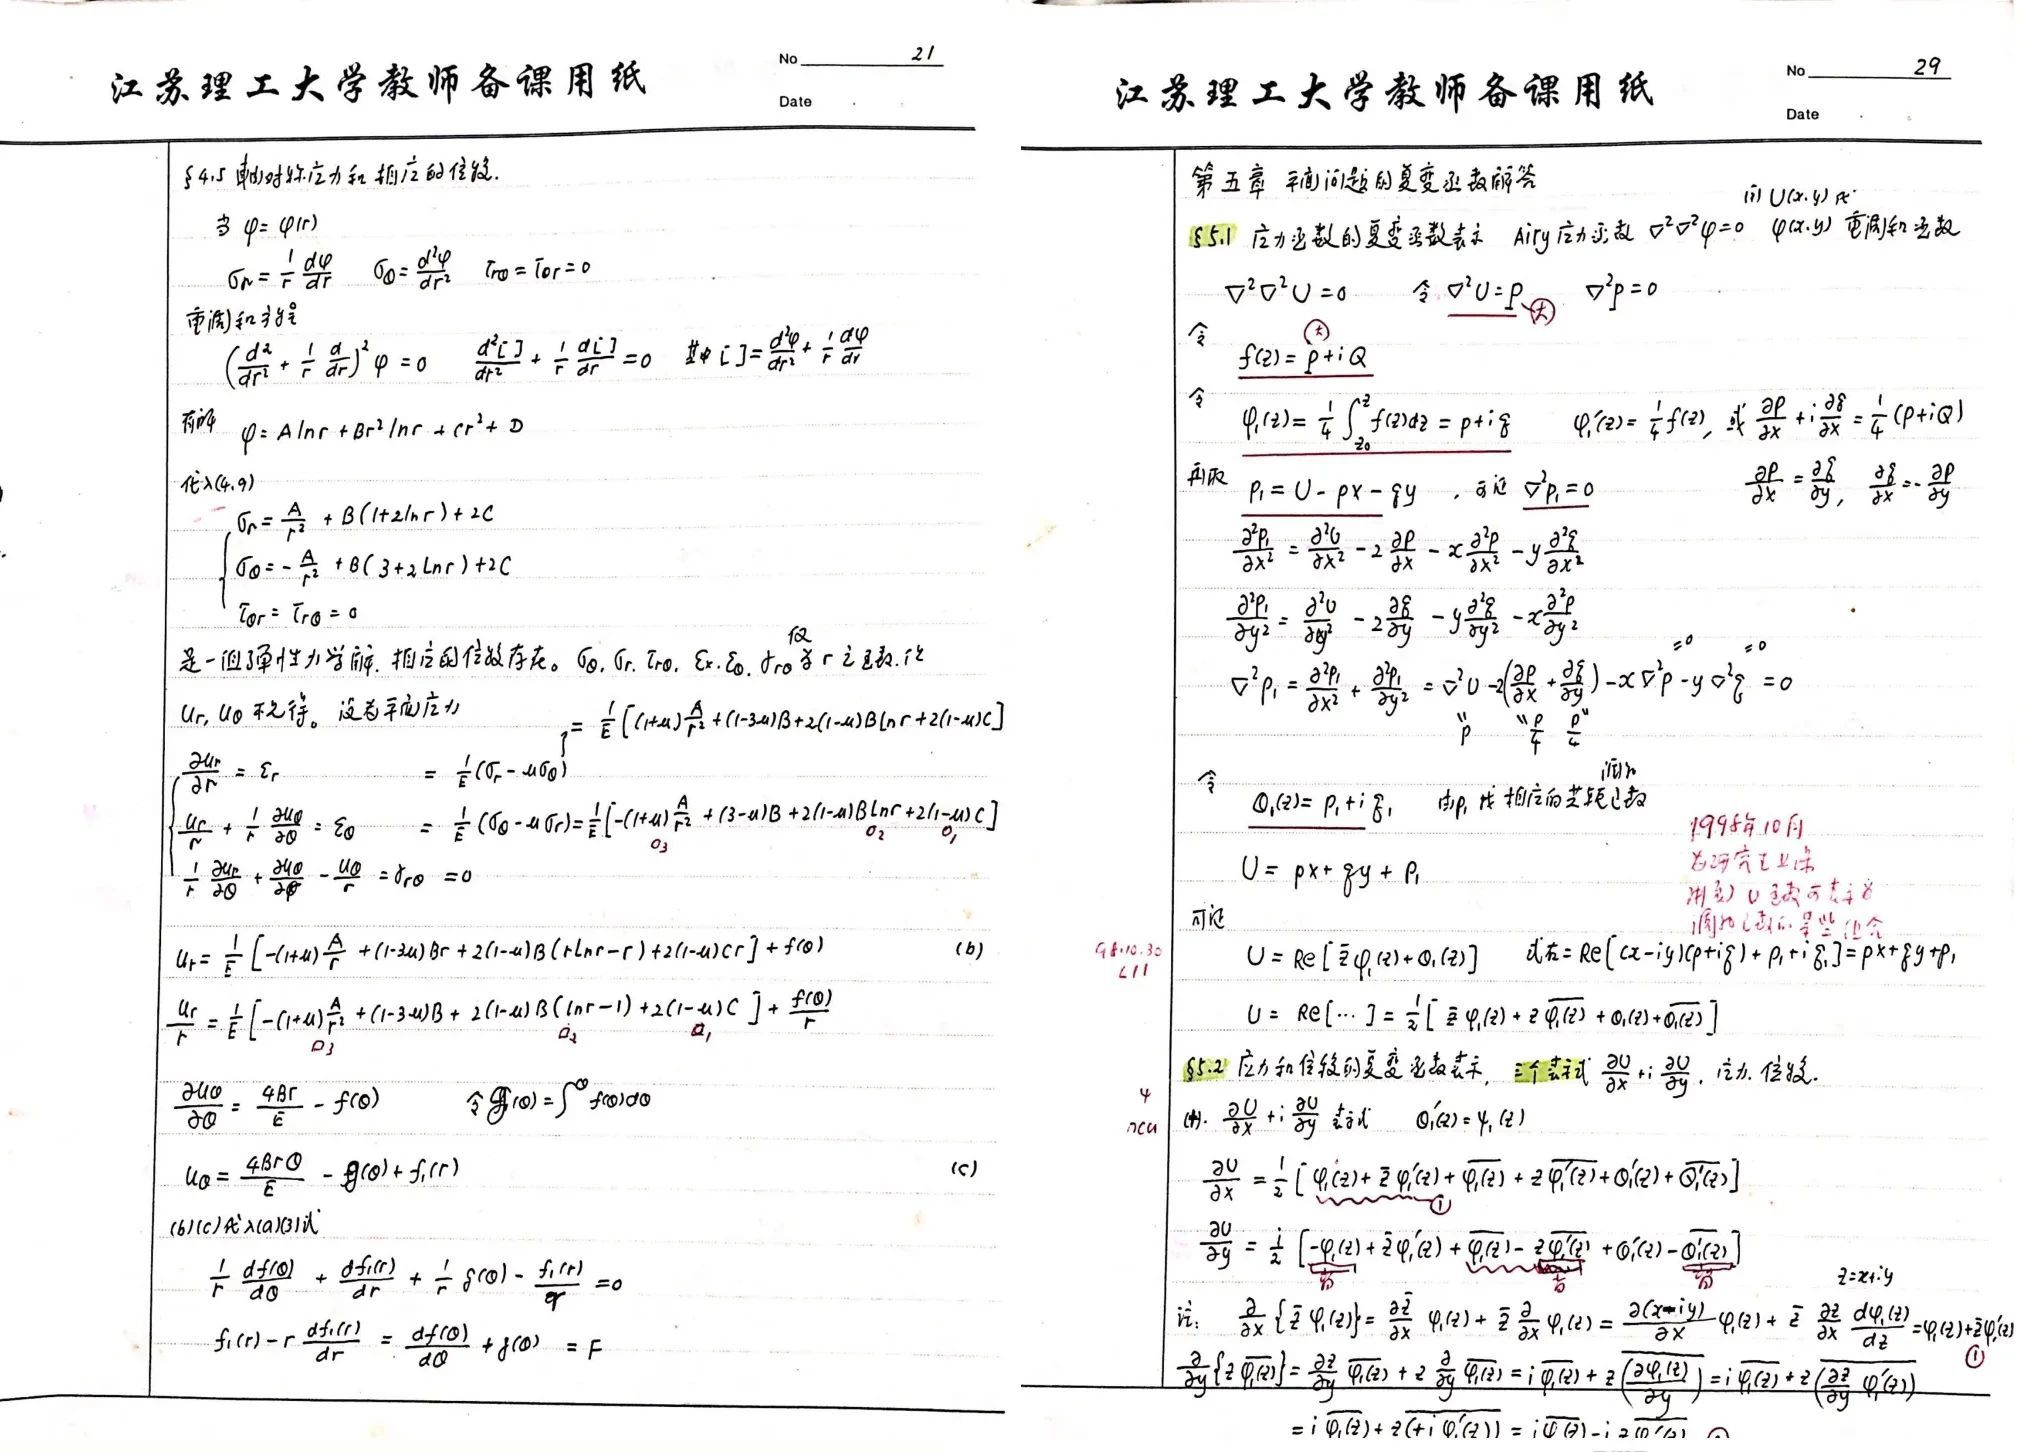 江苏理工大学教师备课用纸
No 21
Date
§4.5 轴对称应力和相应的位移.
当 φ=φ(r)
σr = 1/r dφ/dr  σθ = d²φ/dr²  τrθ = τθr = 0
重调和方程
(d²/dr² + 1/r d/dr)² φ = 0  d²[ ]/dr² + 1/r d[ ]/dr = 0  其中 [ ] = d²φ/dr² + 1/r dφ/dr
有解 φ = A ln r + Br² ln r + Cr² + D
代入(4.9)
σr = A/r² + B(1+2lnr) + 2C
σθ = -A/r² + B(3+2lnr) + 2C
τθr = τrθ = 0
是一组弹性力学解. 相应的位移存在。σθ, σr, τrθ, εr, εθ, γrθ 仅为 r 之函数. 但
ur, uθ 不见得。设为平面应力
= 1/E [(1+μ)A/r² + (1-3μ)B + 2(1-μ)B ln r + 2(1-μ)C]
∂ur/∂r = εr = 1/E (σr - μσθ)
ur/r + 1/r ∂uθ/∂θ = εθ = 1/E (σθ - μσr) = 1/E [-(1+μ)A/r² + (3-μ)B + 2(1-μ)B ln r + 2(1-μ)C]
1/r ∂ur/∂θ + ∂uθ/∂r - uθ/r = γrθ = 0
ur = 1/E [-(1+μ)A/r + (1-3μ)Br + 2(1-μ)B(r ln r - r) + 2(1-μ)Cr] + f(θ)  (b)
ur/r = 1/E [-(1+μ)A/r² + (1-3μ)B + 2(1-μ)B(ln r - 1) + 2(1-μ)C] + f(θ)/r
∂uθ/∂θ = 4Br/E - f(θ)  令 g(θ) = ∫^θ f(θ)dθ
uθ = 4Brθ/E - g(θ) + f₁(r)  (c)
(b)(c)代入(a)(3)式
1/r df(θ)/dθ + df₁(r)/dr + 1/r g(θ) - f₁(r)/r = 0
f₁(r) - r df₁(r)/dr = df(θ)/dθ + g(θ) = F
江苏理工大学教师备课用纸
No 29
Date
第五章 平面问题的复变函数解答
U(x.y)
§5.1 应力函数的复变函数表示 Airy应力函数 ∇²∇²φ=0 φ(x.y) 重调和函数
∇²∇²U=0 令 ∇²U=P ∇²P=0
(大)
令 f(z) = P+iQ
令 φ₁(z) = 1/4 ∫_{z₀}^{z} f(z)dz = p+iq  φ₁′(z) = 1/4 f(z), 或 ∂p/∂x + i ∂q/∂x = 1/4 (P+iQ)
再取 p₁ = U - px - qy, 可证 ∇²p₁=0  ∂p/∂x = ∂q/∂y, ∂q/∂x = -∂p/∂y
∂²p₁/∂x² = ∂²U/∂x² - 2 ∂p/∂x - x ∂²p/∂x² - y ∂²q/∂x²
∂²p₁/∂y² = ∂²U/∂y² - 2 ∂q/∂y - y ∂²q/∂y² - x ∂²p/∂y²
∇²p₁ = ∂²p₁/∂x² + ∂²p₁/∂y² = ∇²U - 2(∂p/∂x + ∂q/∂y) - x∇²p - y∇²q = 0
=0 =0
P P/4 P/4
令 θ₁(z) = p₁+iq₁ 由p₁ 找相应的共轭调和函数
U = px + qy + p₁
1998年10月
可证
U = Re[z̄φ₁(z)+θ₁(z)]  式右 = Re[(x-iy)(p+iq)+p₁+iq₁] = px+qy+p₁
98.10.30
U = Re[⋯] = 1/2 [z̄φ₁(z) + z\overline{φ₁(z)} + θ₁(z) + \overline{θ₁(z)}]
§5.2 应力和位移的复变函数表示, 三个表示式 ∂U/∂x + i ∂U/∂y, 应力. 位移.
∂U/∂x + i ∂U/∂y 表示式  θ₁′(z) = ψ₁(z)
∂U/∂x = 1/2 [φ₁(z) + z̄φ₁′(z) + \overline{φ₁(z)} + z\overline{φ₁′(z)} + θ₁′(z) + \overline{θ₁′(z)}]
①
∂U/∂y = i/2 [-φ₁(z) + z̄φ₁′(z) + \overline{φ₁(z)} - z\overline{φ₁′(z)} + θ₁′(z) - \overline{θ₁′(z)}]
z=x+iy
注: ∂/∂x {z̄φ₁(z)} = ∂z̄/∂x φ₁(z) + z̄ ∂/∂x φ₁(z) = ∂(x-iy)/∂x φ₁(z) + z̄ ∂z/∂x dφ₁(z)/dz = φ₁(z)+z̄φ₁′(z)
①
∂/∂y {z\overline{φ₁(z)}} = ∂z/∂y \overline{φ₁(z)} + z ∂/∂y \overline{φ₁(z)} = i\overline{φ₁(z)} + z\overline{(∂φ₁(z)/∂y)} = i\overline{φ₁(z)} + z\overline{(∂z/∂y φ₁′(z))}
= i\overline{φ₁(z)} + z\overline{(+iφ₁′(z))} = i\overline{φ₁(z)} - iz\overline{φ₁′(z)}